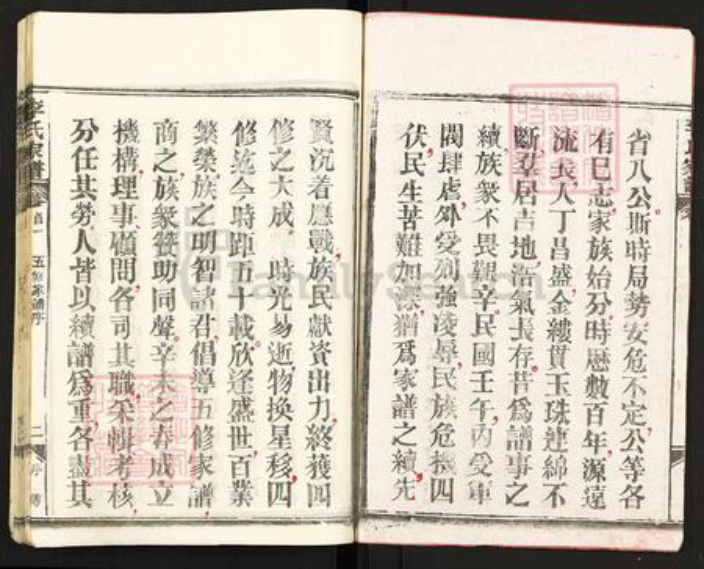 省八公斯時局勢安危不定公等各
有巳志家族始分時歷數百年源遠
流長人丁昌盛金縷貫玉珠連綿不
斷羣居吉地浩氣長存昔為譜事之
續族衆不畏艱辛民國壬午內受軍
閥肆虐外受列強凌辱民族危機四
伏民生苦難加深猶爲家譜之續先
賢沉着應戰族民獻資出力終獲四
修之大成 時光易逝物換星移四
修迄今時距五十載欣逢盛世百業
繁榮族之明智諸君倡導五修家譜
商之族衆贊助同聲辛未之春成立
機構理事顧問各司其職采輯考核
分任其勞人皆以續譜爲重各盡其
李氏家譜
卷首一
五修家譜序
二
FamilySearch